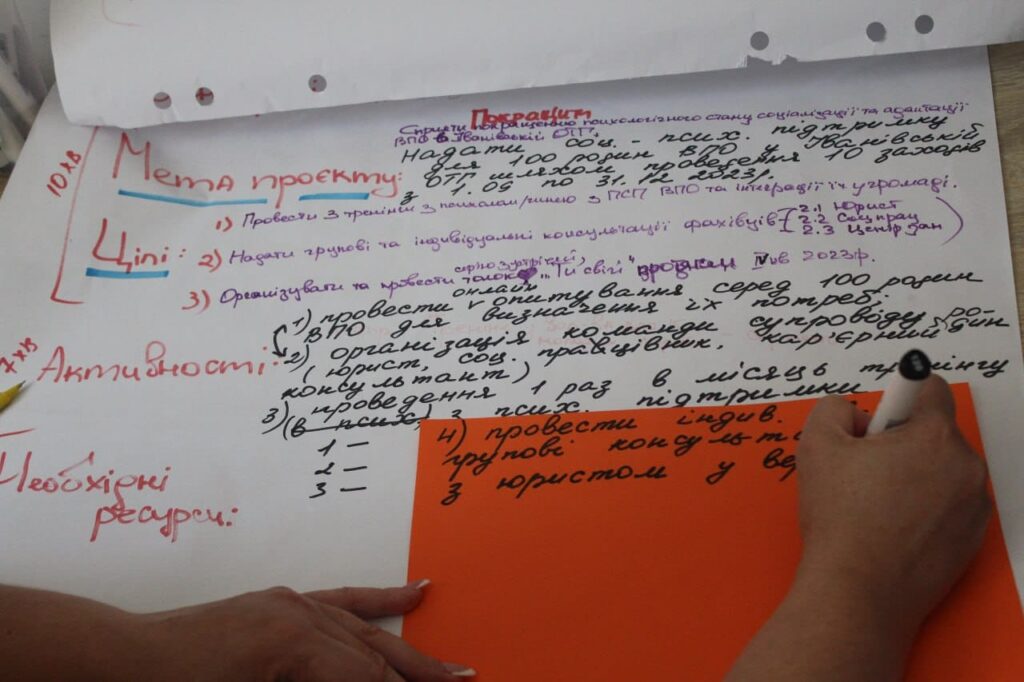 Покращити
Сприяти покращенню психологічного стану соціалізації та адаптації
ВПО в Іванівській ОТГ.
Надати соц. - псих. підтримку
для 100 родин ВПО у Іванівській
ОТГ шляхом проведення 10 заходів
з 1.09 по 31.12 2023р.
10 хв
Мета проєкту:
1) Провести 3 тренінги з психологом з ПСП ВПО та інтеграції їх у громаді.
Цілі:
2) Надати групові та індивідуальні консультації фахівців
2.1 Юрист
2.2 Соц прац
2.3 Центр зан
3) Організувати та провести "Ти в світі" IV кв 2023р.
1) провести онлайн опитування серед 100 родин
ВПО для визначення їх потреб;
7 хв
Активності:
2) організація команди супроводу родин
(юрист, соц. працівник, кар'єрний
консультант)
3) проведення 1 раз в місяць тренінгу
(в псих.) з псих. підтримки
1 –
2 –
3 –
4) провести індив.
групові
з юристом у
Необхідні
ресурси: